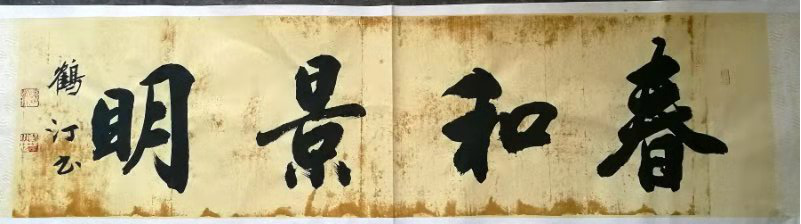 春和景明
鶴汀书